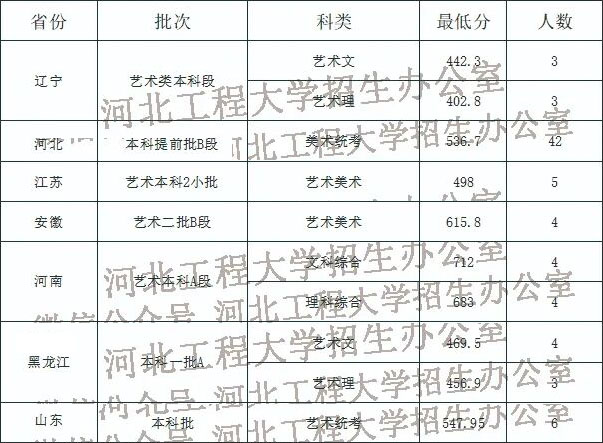 省份 批次 科类 最低分 人数
辽宁 艺术类本科段 艺术文 442.3 3
艺术理 402.8 3
河北 本科提前批B段 美术统考 536.7 42
江苏 艺术本科2小批 艺术美术 498 5
安徽 艺术二批B段 艺术美术 615.8 4
河南 艺术本科A段 文科综合 712 4
理科综合 683 4
黑龙江 本科一批A 艺术文 469.5 4
艺术理 456.9 3
山东 本科批 艺术统考 547.95 6
河北工程大学招生办公室
河北工程大学招生办公室
河北工程大学招生办公室
河北工程大学招生办公室
河北工程大学招生办公室
河北工程大学招生办公室